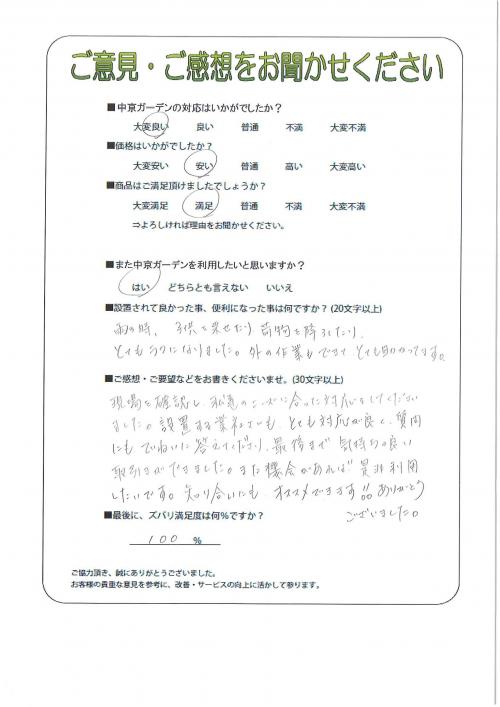 ご意見・ご感想をお聞かせください
■中京ガーデンの対応はいかがでしたか？
大変良い 良い 普通 不満 大変不満
■価格はいかがでしたか？
大変安い 安い 普通 高い 大変高い
■商品はご満足頂けましたでしょうか？
大変満足 満足 普通 不満 大変不満
⇒よろしければ理由をお聞かせください。
■また中京ガーデンを利用したいと思いますか？
はい どちらとも言えない いいえ
■設置されて良かった事、便利になった事は何ですか？(20文字以上)
雨の時、子供を乗せたり荷物を降ろしたり、
とてもラクになりました。外の作業もできて とても助かってます。
■ご感想・ご要望などをお書きくださいませ。(30文字以上)
現場を確認し、私達のニーズに合った対応をしてください
ました。設置する業者さんも、とても対応が良く、質問
にもていねいに答えてくださり、最後まで 気持ちの良い
取引きができました。また機会があれば 是非利用
したいです。知り合いにも オススメできます!! ありがとう
ございました。
■最後に、ズバリ満足度は何％ですか？
100 ％
ご協力頂き、誠にありがとうございました。
お客様の貴重な意見を参考に、改善・サービスの向上に活かして参ります。